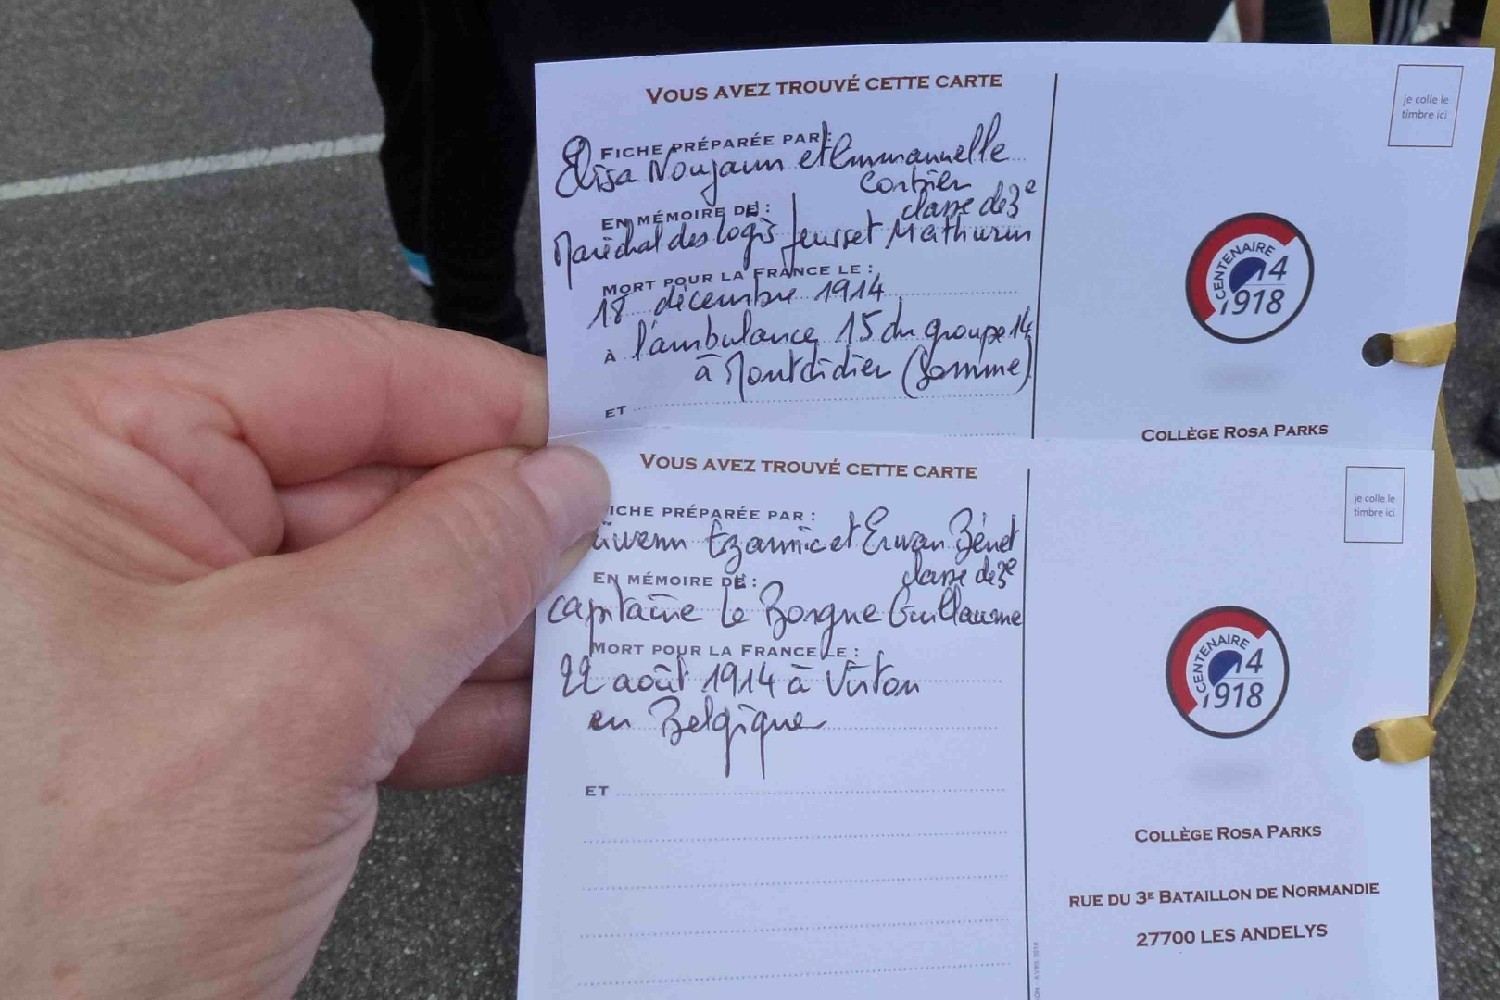 VOUS AVEZ TROUVÉ CETTE CARTE
FICHE PRÉPARÉE PAR :
Elisa Noujaim et Emmanuelle
Corbier
classe de 3e
EN MÉMOIRE DE :
Maréchal des logis Jeusset Mathurin
MORT POUR LA FRANCE LE :
18 décembre 1914
À l'ambulance 15 du groupe 14
à Montdidier (Somme)
ET
je colle le
timbre ici
CENTENAIRE
14
1918
COLLÈGE ROSA PARKS
VOUS AVEZ TROUVÉ CETTE CARTE
ICHE PRÉPARÉE PAR :
Ezannic et Erwan Bénet
classe de 3e
EN MÉMOIRE DE :
capitaine Le Borgne Guillaume
MORT POUR LA FRANCE LE :
22 août 1914 à Virton
en Belgique
ET
je colle le
timbre ici
CENTENAIRE
14
1918
COLLÈGE ROSA PARKS
RUE DU 3E BATAILLON DE NORMANDIE
27700 LES ANDELYS